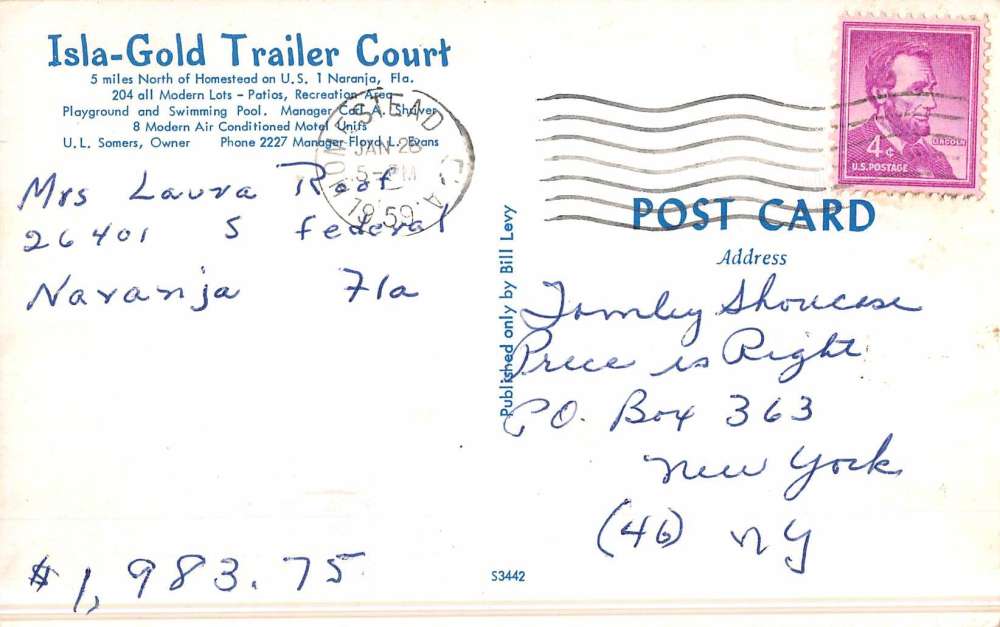 Isla-Gold Trailer Court
5 miles North of Homestead on U.S. 1 Naranja, Fla.
204 all Modern Lots - Patios, Recreation Area
Playground and Swimming Pool. Manager Carl A. Shriver
8 Modern Air Conditioned Motel Units
U.L. Somers, Owner Phone 2227 Manager Floyd L. Evans
HOMESTEAD FLA.
JAN 28
5-PM
1959
4¢
LINCOLN
U.S. POSTAGE
Mrs Laura Roof
26401 S Federal
Naranja Fla
$1,983.75
Published only by Bill Levy
S3442
POST CARD
Address
Showcase
Price is Right
P.O. Box 363
New York
(46) NY